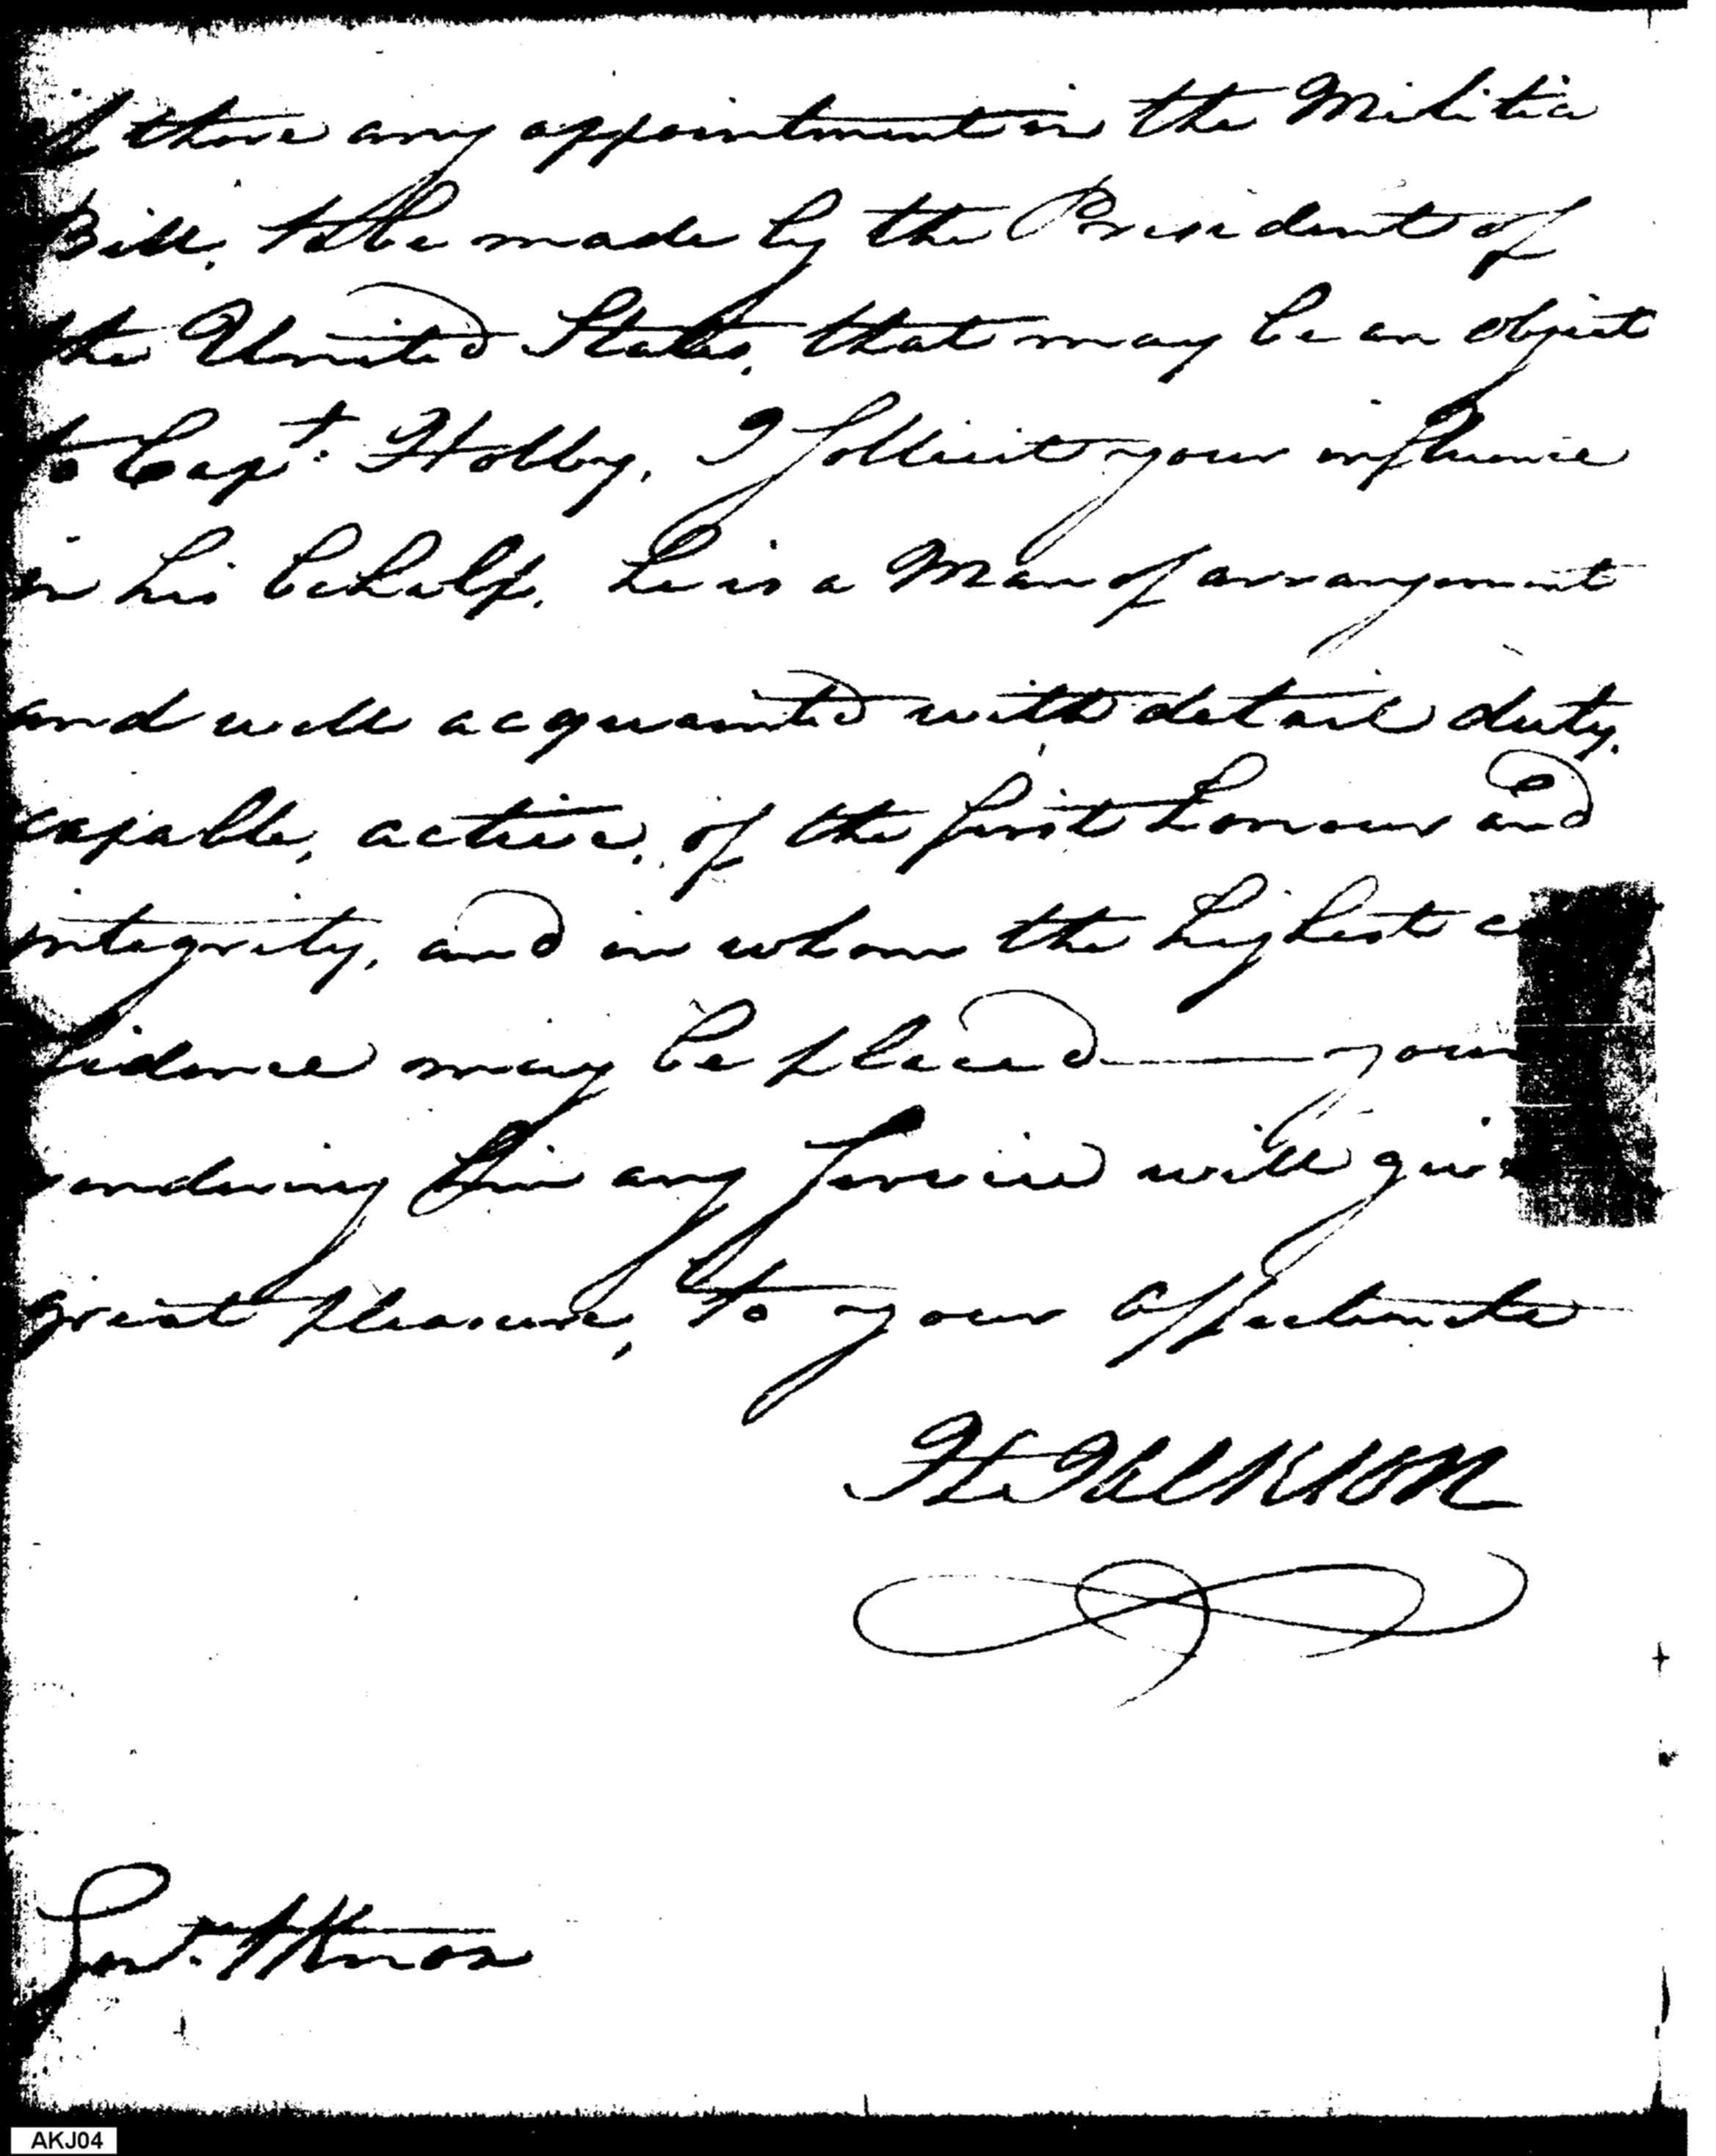 if there any appointment in the Militia
Bill, to be made by the President of
the United States, that may be an object
to Capt. Hobby, I sollicit your influence
in his behalf, he is a Man of arrangement
and well acquainted with detail duty,
capable, active, of the first honour and
integrity, and in whom the highest
fidence may be placed — your
rendering him any Service will give
great pleasure, to your affectionate
H Jackson
Genl. H Knox
AKJ04